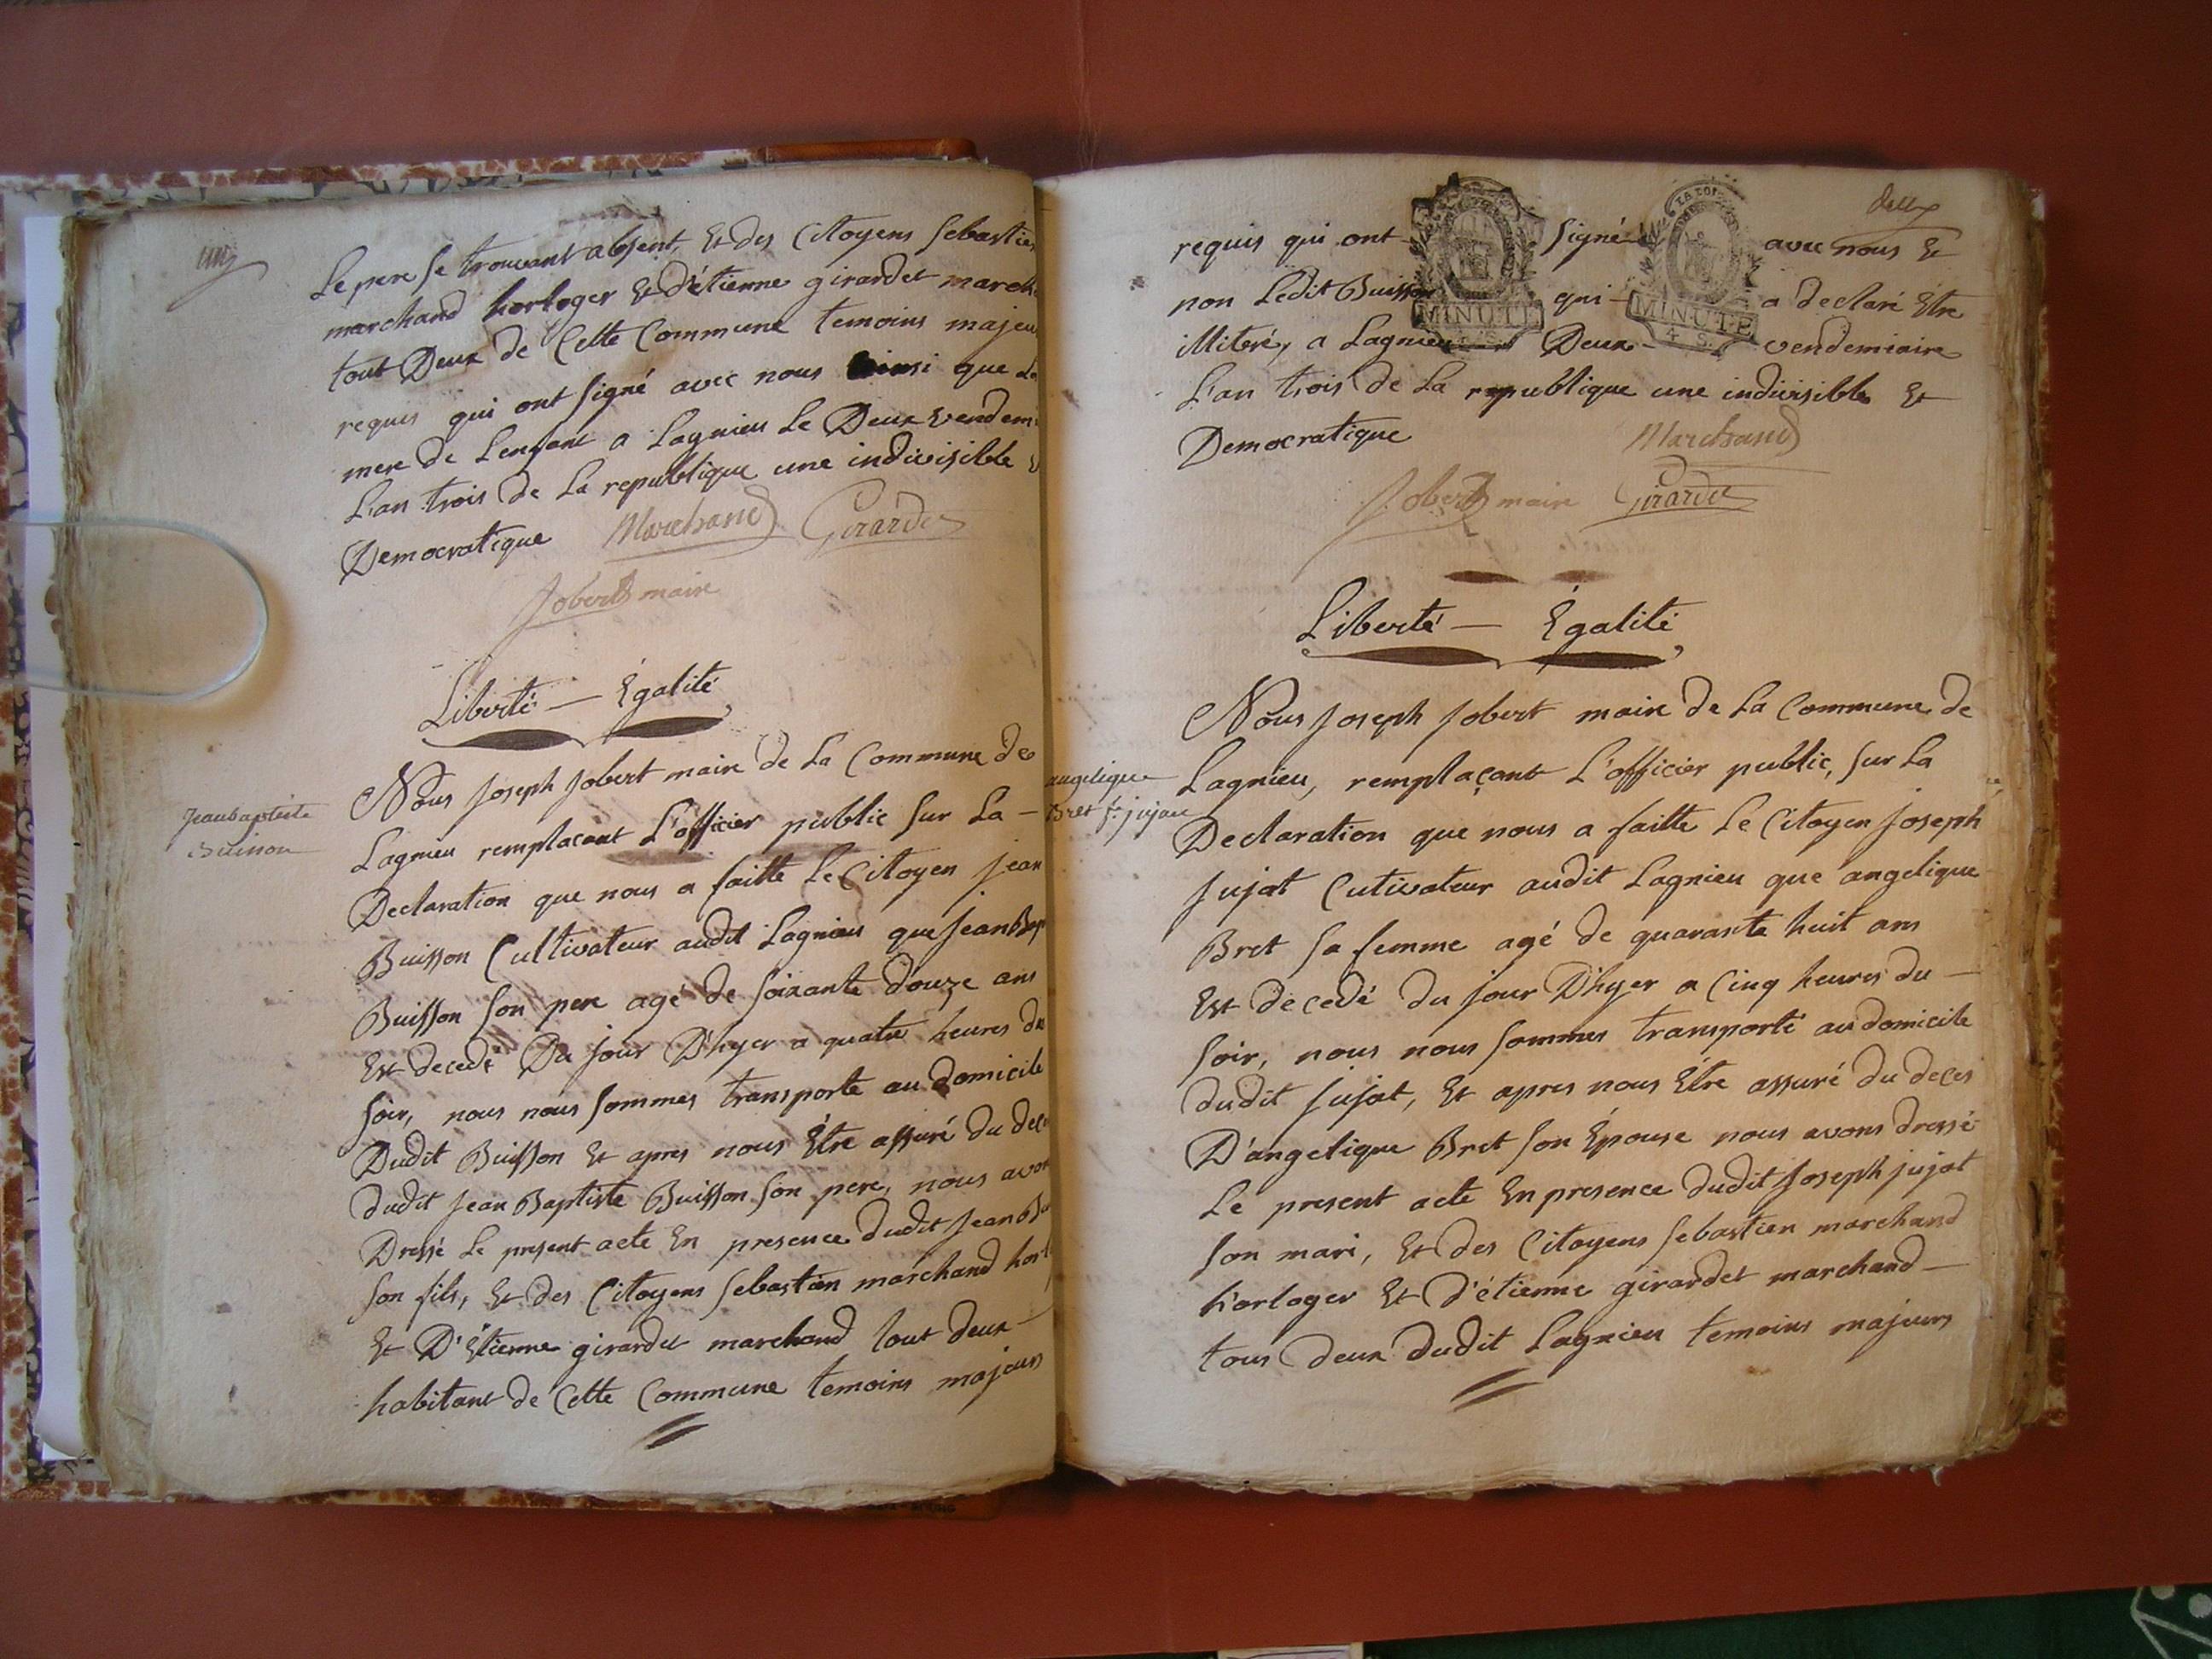 Le pere se trouvant absent, Et des Citoyens Sebastien
marchand horloger Et d'étienne girardet march
tout Deux de Cette Commune temoins majeu
requis qui ont signé avec nous ainsi que La
mere de L'enfant a Lagnieu Le Deux vendemi
L'an trois de La republique une indivisible
Democratique Marchand Girardet
Jobert maire
Liberté — Égalité
Jean baptiste
Buisson
Nous Joseph Jobert maire de La Commune de
Lagnieu remplaçant L'officier public sur La —
Declaration que nous a faitte Le Citoyen jean
Buisson Cultivateur audit Lagnieu que Jean Bap
Buisson son pere agé de soixante douze ans
Est decedé Du jour D'hyer a quatre heures du
soir, nous nous sommes transporte au domicile
Dudit Buisson Et apres nous Être assuré du dec
dudit Jean Baptiste Buisson son pere, nous avo
Dressé Le present acte En presence dudit Jean Bu
son fils, Et des Citoyens Sebastien marchand hor
Et D'Étienne girardet marchand tout deux —
habitant de Cette Commune temoins majeurs
requis qui ont signé avec nous Et
non Ledit Buisson qui — a declaré Être
illiteré, a Lagnieu Deux — vendemiaire
L'an trois de La republique une indivisible Et
Democratique Marchand
Jobert maire Girardet
MINUTE
LA LOI
MINUTE
4 S.
Liberté — Égalité
angelique
Bret f.e jujat
Nous Joseph Jobert maire de La Commune de
Lagnieu, remplaçant L'officier public, sur La
Declaration que nous a faitte Le Citoyen Joseph
Jujat Cutivateur audit Lagnieu que angelique
Bret sa femme agé de quarante huit ans
Est decedé du jour D'hyer a Cinq heures du —
soir, nous nous sommes transporté au domicile
dudit jujat, Et apres nous Être assuré du deces
D'angelique Bret son Épouse nous avons dressé
Le present acte En presence dudit Joseph jujat
son mari, Et des Citoyens Sebastien marchand
horloger Et d'étienne girardet marchand —
tous deux dudit Lagnieu temoins majeurs